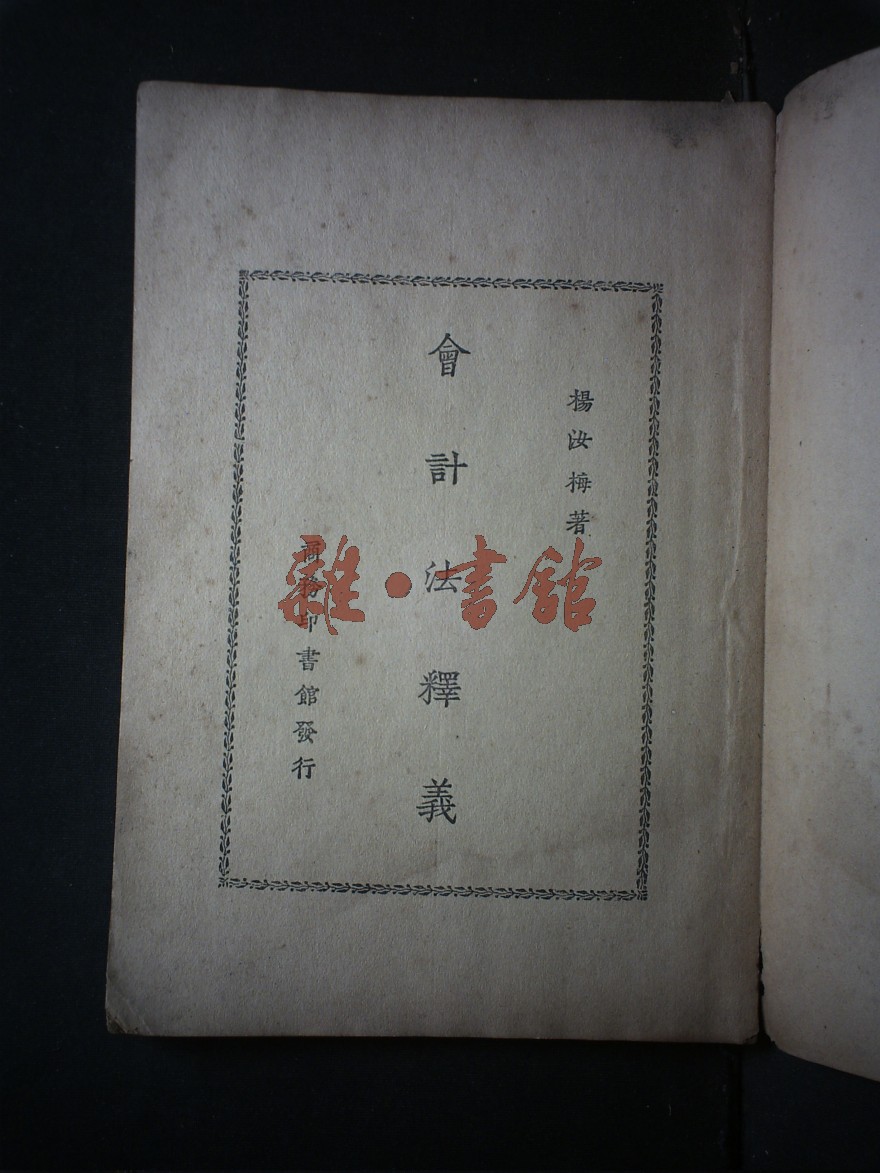 楊汝梅著
會計法釋義
商務印書館發行
雜·書館